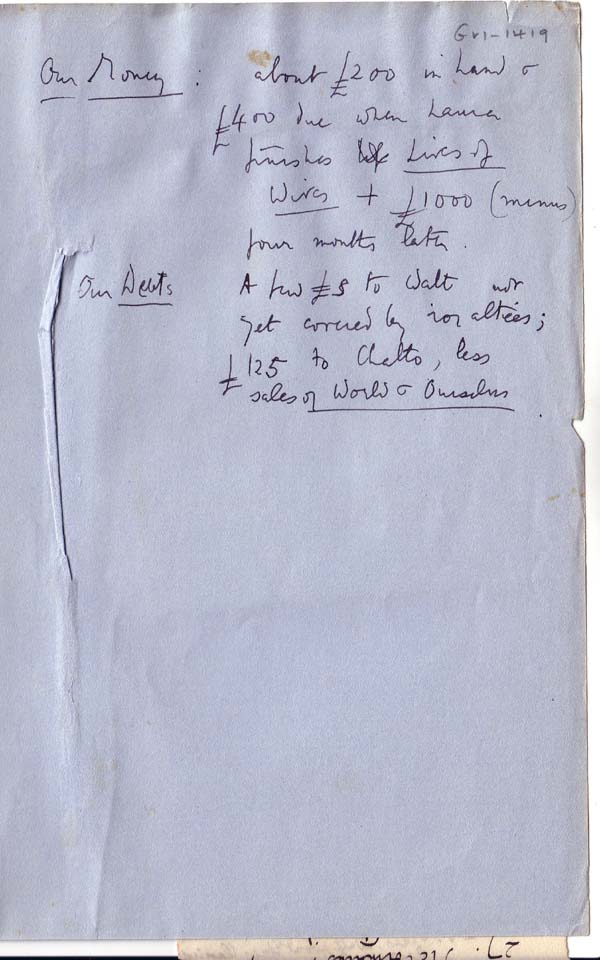 Gr1-1419
Our Money : about £200 in hand &
£400 due when Laura
finishes Lives of
Wives + £1000 (minus)
four months later.
Our Debts A few £s to Walt not
yet covered by royalties;
£125 to Chatto, less
sales of World & Ourselves
2).